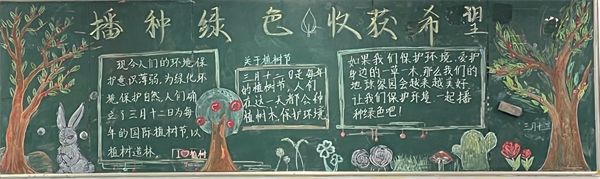 播种绿色收获希望
现今人们的环境保
护意识薄弱,为绿化环
境,保护自然,人们确
立了三月十二日为每
年的国际植树节,以
植树造林。
I 植树
关于植树节
三月十二日是每年
的植树节,人们
在这一天都会种
植树木,保护环境
如果我们保护环境,爱护
身边的一草一木,那么我们的
地球家园会越来越美好,
让我们保护环境一起播
种绿色吧!
三月十二